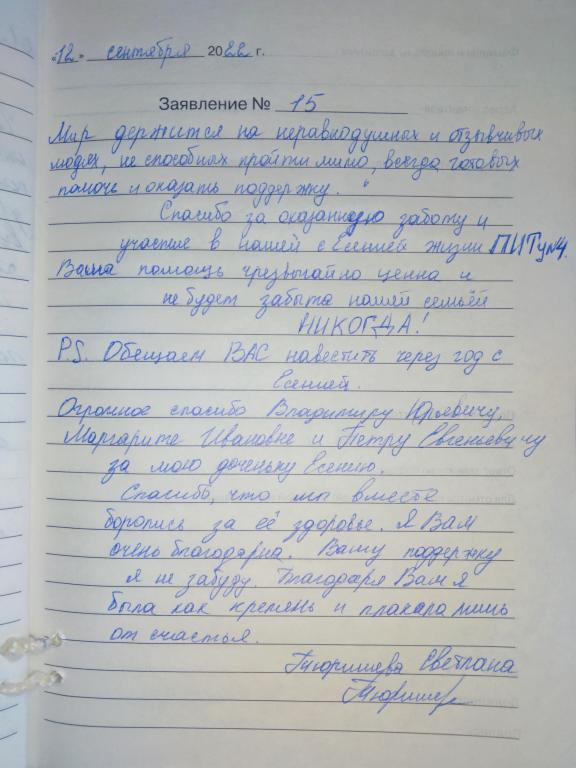 «12» сентября 2022 г.
Заявление № 15
Мир держится на неравнодушных и отзывчивых
людях, не способных пройти мимо, всегда готовых
помочь и оказать поддержку."
Спасибо за оказанную заботу и
участие в нашей с Есенией жизни ПИТу№4.
Ваша помощь чрезвычайно ценна и
не будет забыта нашей семьёй
НИКОГДА!
P.S. Обещаем ВАС навестить через год с
Есенией.
Огромное спасибо Владимиру Юрьевичу,
Маргарите Ивановне и Петру Евгеньевичу
за мою доченьку Есению.
Спасибо, что мы вместе
боролись за её здоровье. Я Вам
очень благодарна. Вашу поддержку
я не забуду. Благодаря Вам я
была как кремень и плакала лишь
от счастья.
Тюришева Светлана